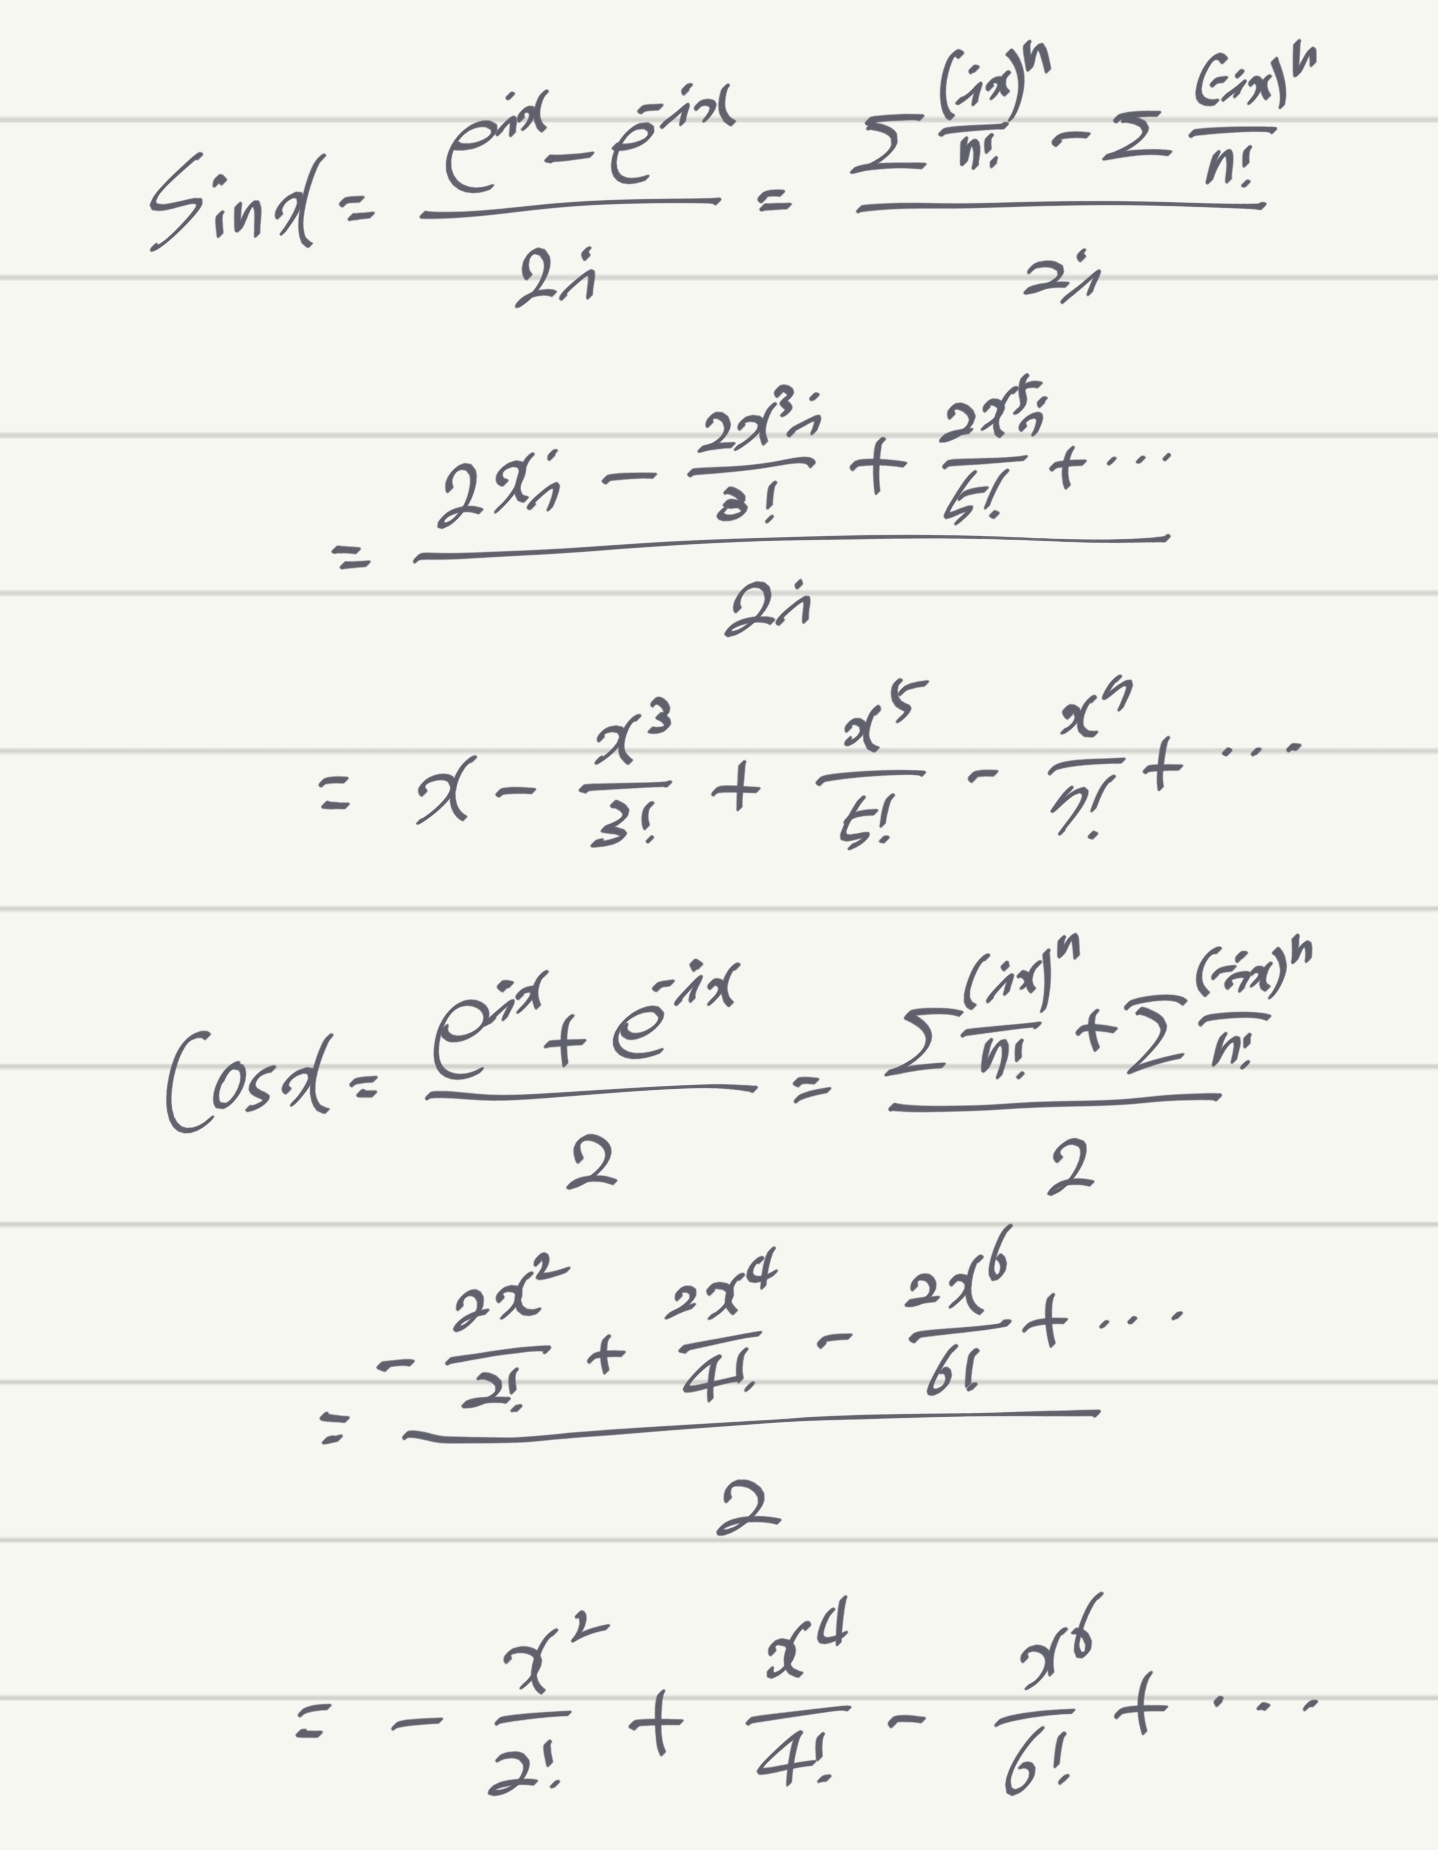 Sinx = (e^{ix} - e^{-ix})/(2i) = (Σ (ix)^n/n! - Σ (-ix)^n/n!)/(2i)
= (2xi - 2x^3i/3! + 2x^5i/5! + ···)/(2i)
= x - x^3/3! + x^5/5! - x^7/7! + ···
Cosx = (e^{ix} + e^{-ix})/2 = (Σ (ix)^n/n! + Σ (-ix)^n/n!)/2
= (- 2x^2/2! + 2x^4/4! - 2x^6/6! + ···)/2
= - x^2/2! + x^4/4! - x^6/6! + ···